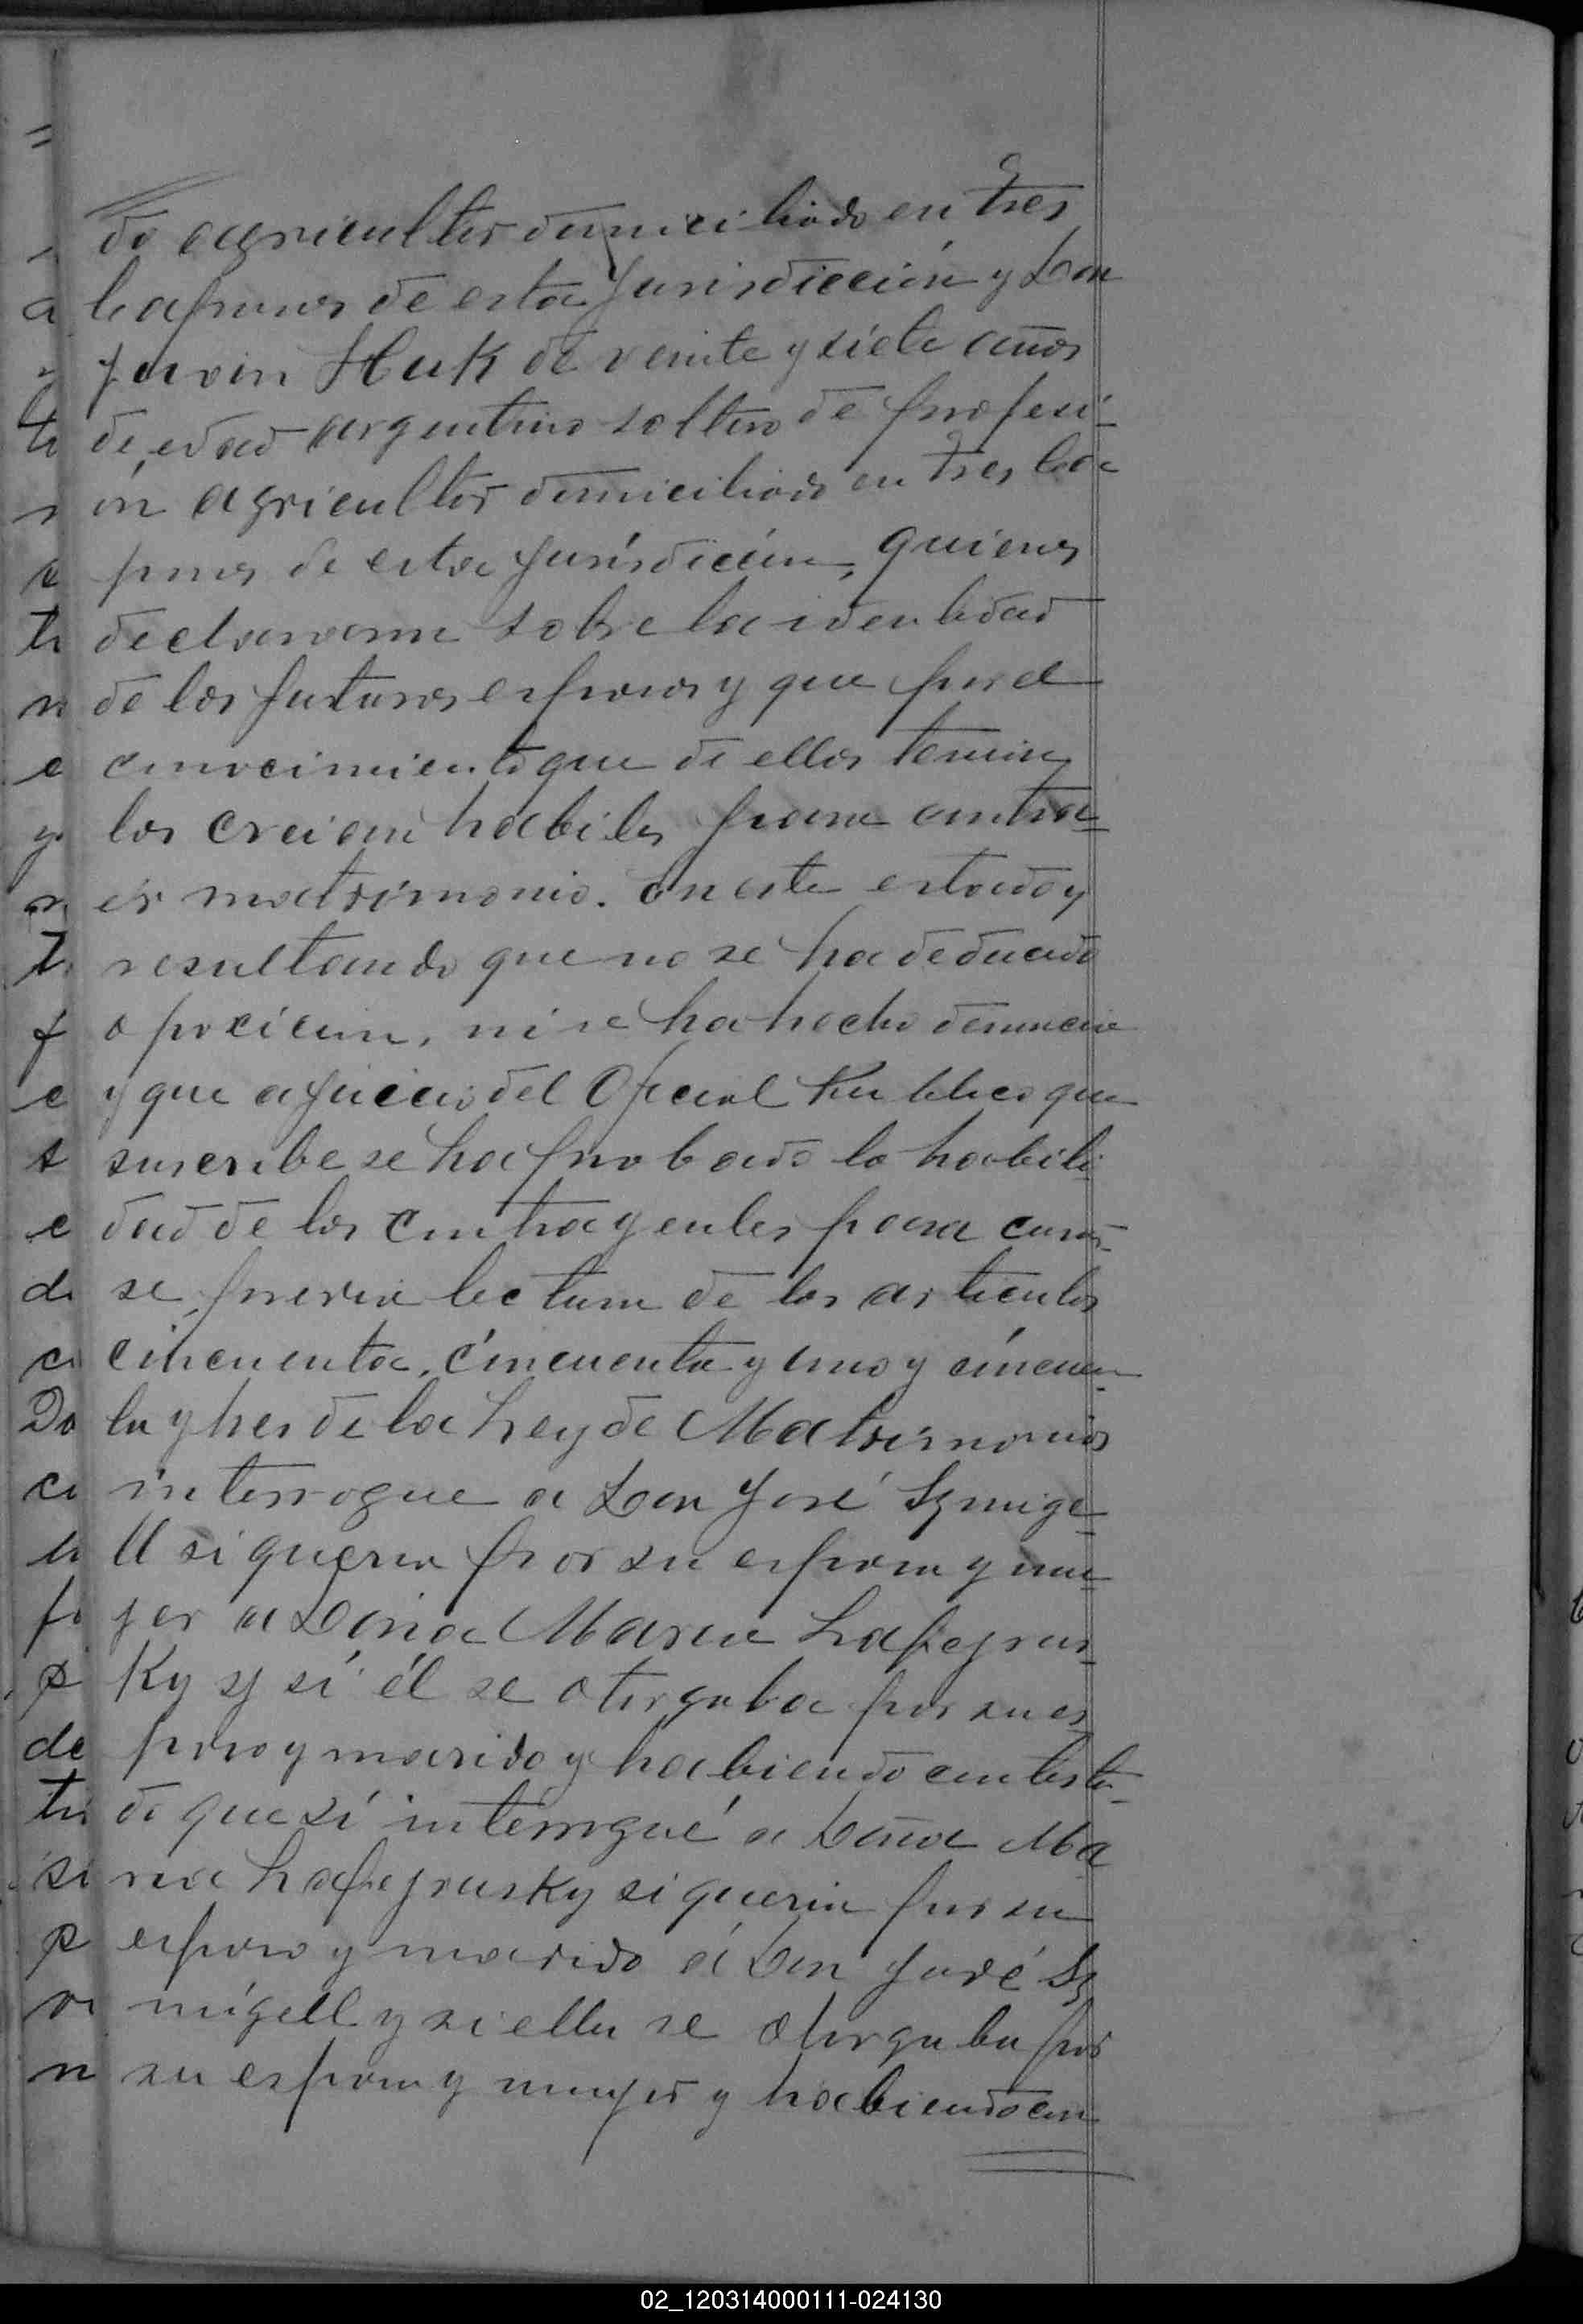 do agricultor domiciliado en Tres
Capones de esta Jurisdicción y Don
Juan Huk de veinte y siete años
de edad argentino soltero de profesi-
ón agricultor domiciliado en Tres Ca
pones de esta Jurisdicción, quienes
declararon sobre la identidad
de los futuros esposos y que por el
conocimiento que de ellos tenian
los creian habiles para contra-
er matrimonio. En este estado y
resultando que no se ha deducido
oposición, ni se ha hecho denuncia
y que a juicio del Oficial Publico que
suscribe se ha probado la habili-
dad de los contrayentes para casar-
se, previa lectura de los articulos
cincuenta, cincuenta y uno y cincuen-
ta y tres de la Ley de Matrimonios
interrogue a Don José Szmige-
ll si queria por su esposa y mu-
jer a Doña Maria Lapejrus-
ky y si él se otorgaba por su es-
poso y marido y habiendo contesta-
do que sí interrogué a Doña Ma
ria Lapejrusky si queria por su
esposo y marido á Don José Sz
migell y si ella se otorgaba por
su esposa y mujer y habiendo con-
02_120314000111-024130